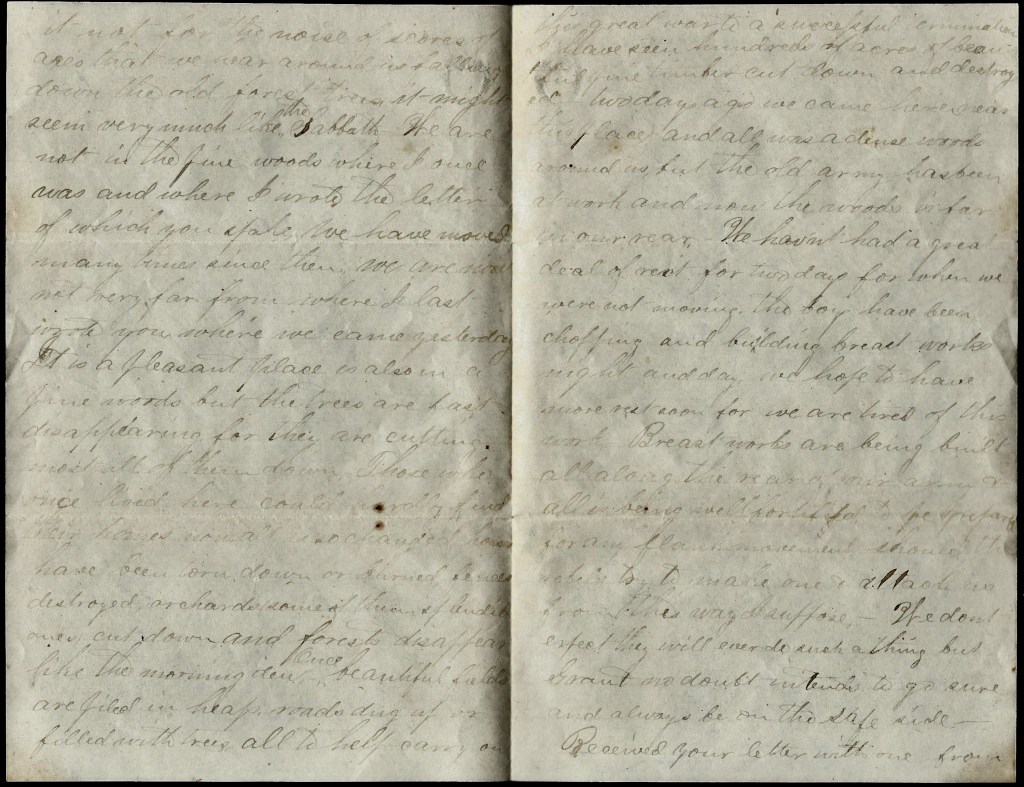 it not for the noise of scores of
axes that we hear around us falling
down the old forest trees it might
seem very much like the Sabbath We are
not in the fine woods where I once
was and where I wrote the letter
of which you spake We have moved
many times since then, we are now
not very far from where I last
wrote you where we came yesterday
It is a pleasant place is also in a
fine woods but the trees are fast
disappearing for they are cutting
most all of them down Those who
once lived here could hardly find
their homes now all is so changed houses
have been torn down or burned, fences
destroyed, orchards some of them splendid
ones, cut down and forests disappear
like the morning dew, Once beautiful fields
are piled in heaps roads dug up or
filled with trees all to help carry on
this great war to a successful termination
I have seen hundreds of acres of beau
tiful pine timber cut down and destroy
ed two days ago we came here near
this place and all was a dense woods
around us but the old army has been
at work and now the woods is far
in our rear, - We havnt had a grea
deal of rest for two days for when we
were not moving, the boys have been
chopping and building breast works
night and day we hope to have
more rest soon for we are tired of this
work Breast works are being built
all along the rear of our army &
all is being well fortified to be prepared
for any flank movement should the
rebels try to make one & attack us
from this way I suppose, - We dont
expect they will ever do such a thing but
Grant no doubt intends to go sure
and always be on the safe side -
Received your letter with one from